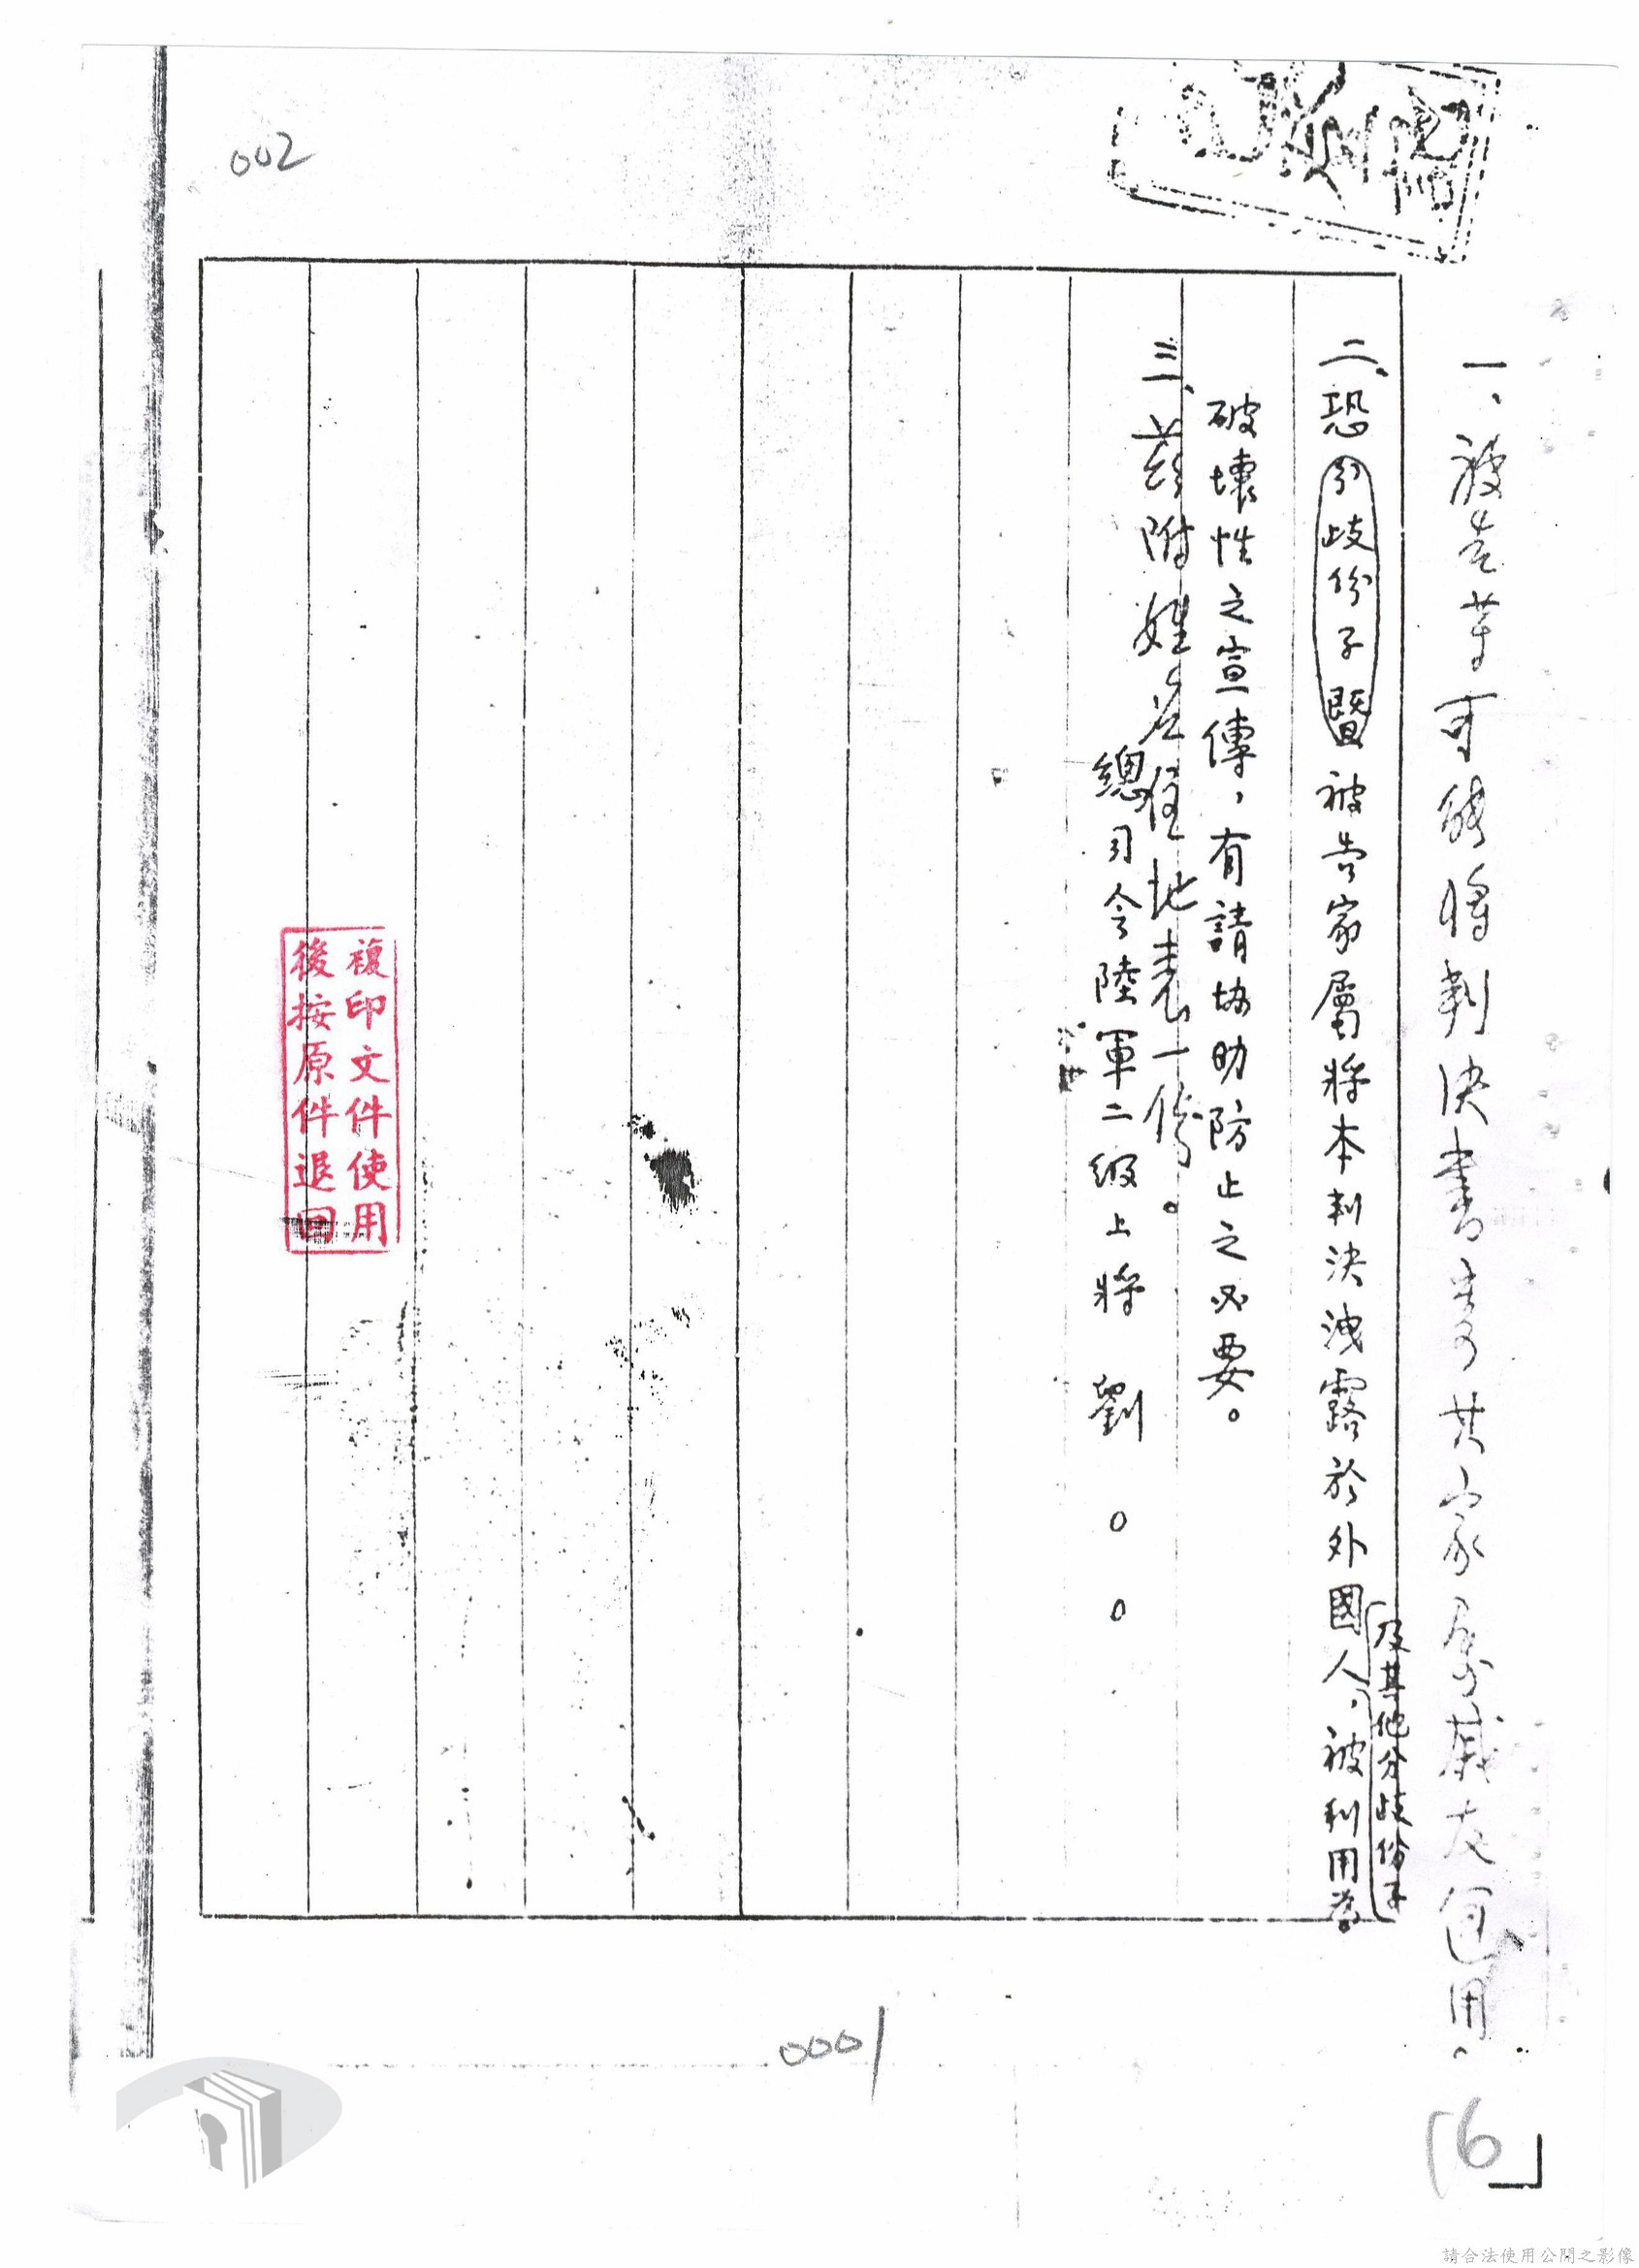 002
一、被告等可能將判決書寄與其家屬戚友運用。
二、恐分歧份子暨被告家屬將本判決洩露於外國人,被利用為
及其他分歧份子
破壞性之宣傳,有請協助防止之必要。
三、茲附姓名住地表一份。
總司令陸軍二級上將 劉○○
複印文件使用
後按原件退回
0001
16
請合法使用公開之影像